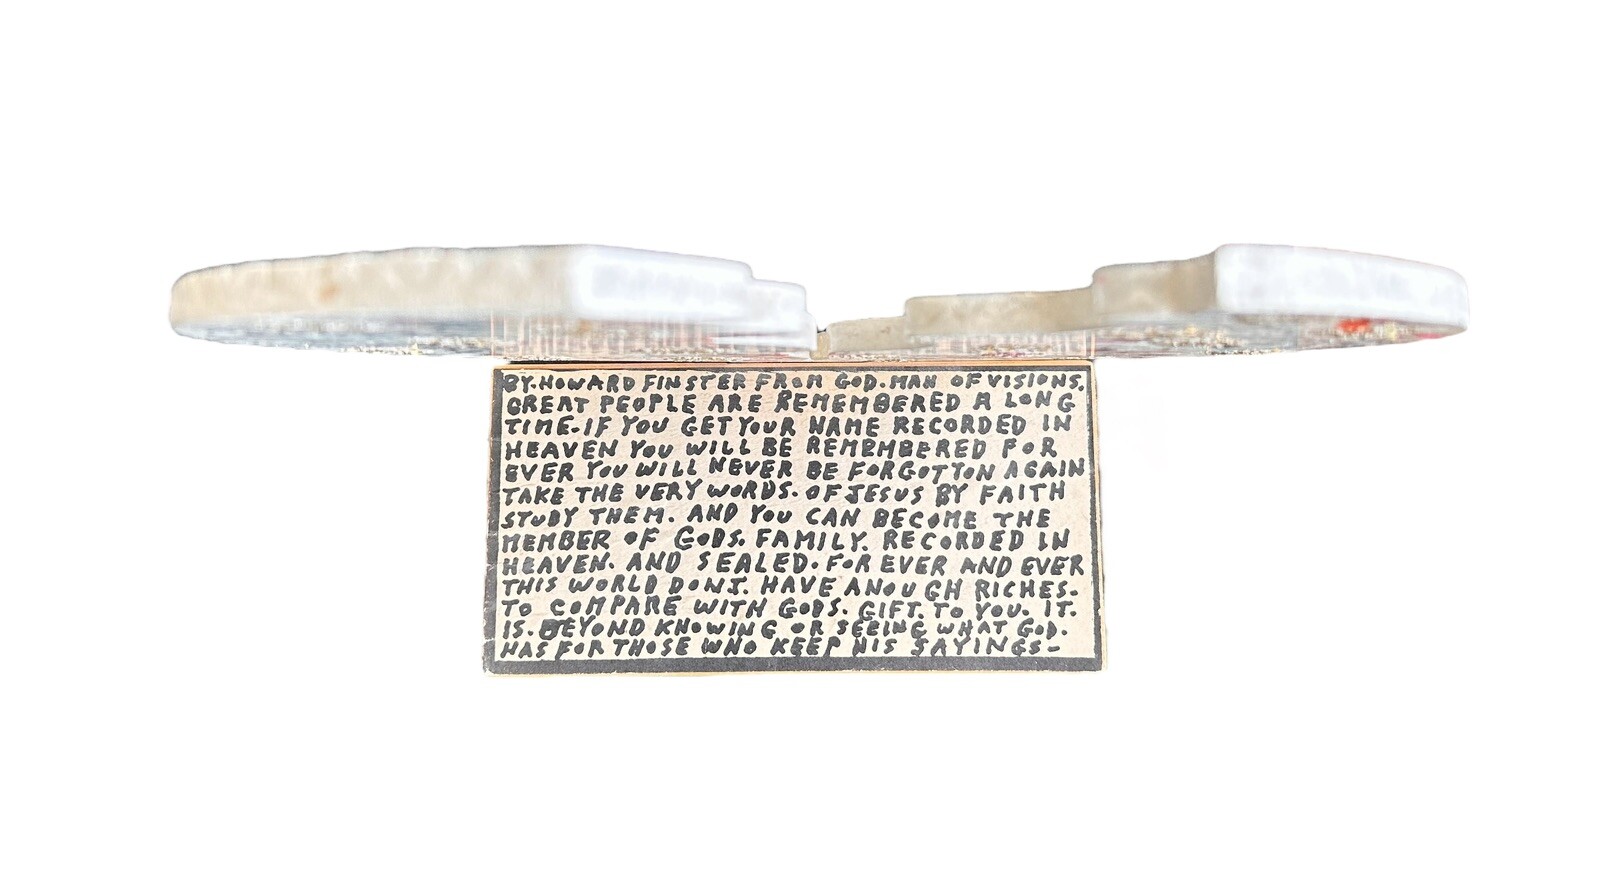 BY. HOWARD FINSTER FROM GOD. MAN OF VISIONS.
GREAT PEOPLE ARE REMEMBERED A LONG
TIME. IF YOU GET YOUR NAME RECORDED IN
HEAVEN YOU WILL BE REMEMBERED FOR
EVER YOU WILL NEVER BE FORGOTTON AGAIN
TAKE THE VERY WORDS. OF JESUS BY FAITH
STUDY THEM. AND YOU CAN BECOME THE
MEMBER OF GODS. FAMILY. RECORDED IN
HEAVEN. AND SEALED. FOR EVER AND EVER
THIS WORLD DONT. HAVE ANOUGH RICHES.
TO COMPARE WITH GODS. GIFT. TO YOU. IT.
IS. BEYOND KNOWING OR SEEING WHAT GOD.
HAS FOR THOSE WHO KEEP HIS SAYINGS-